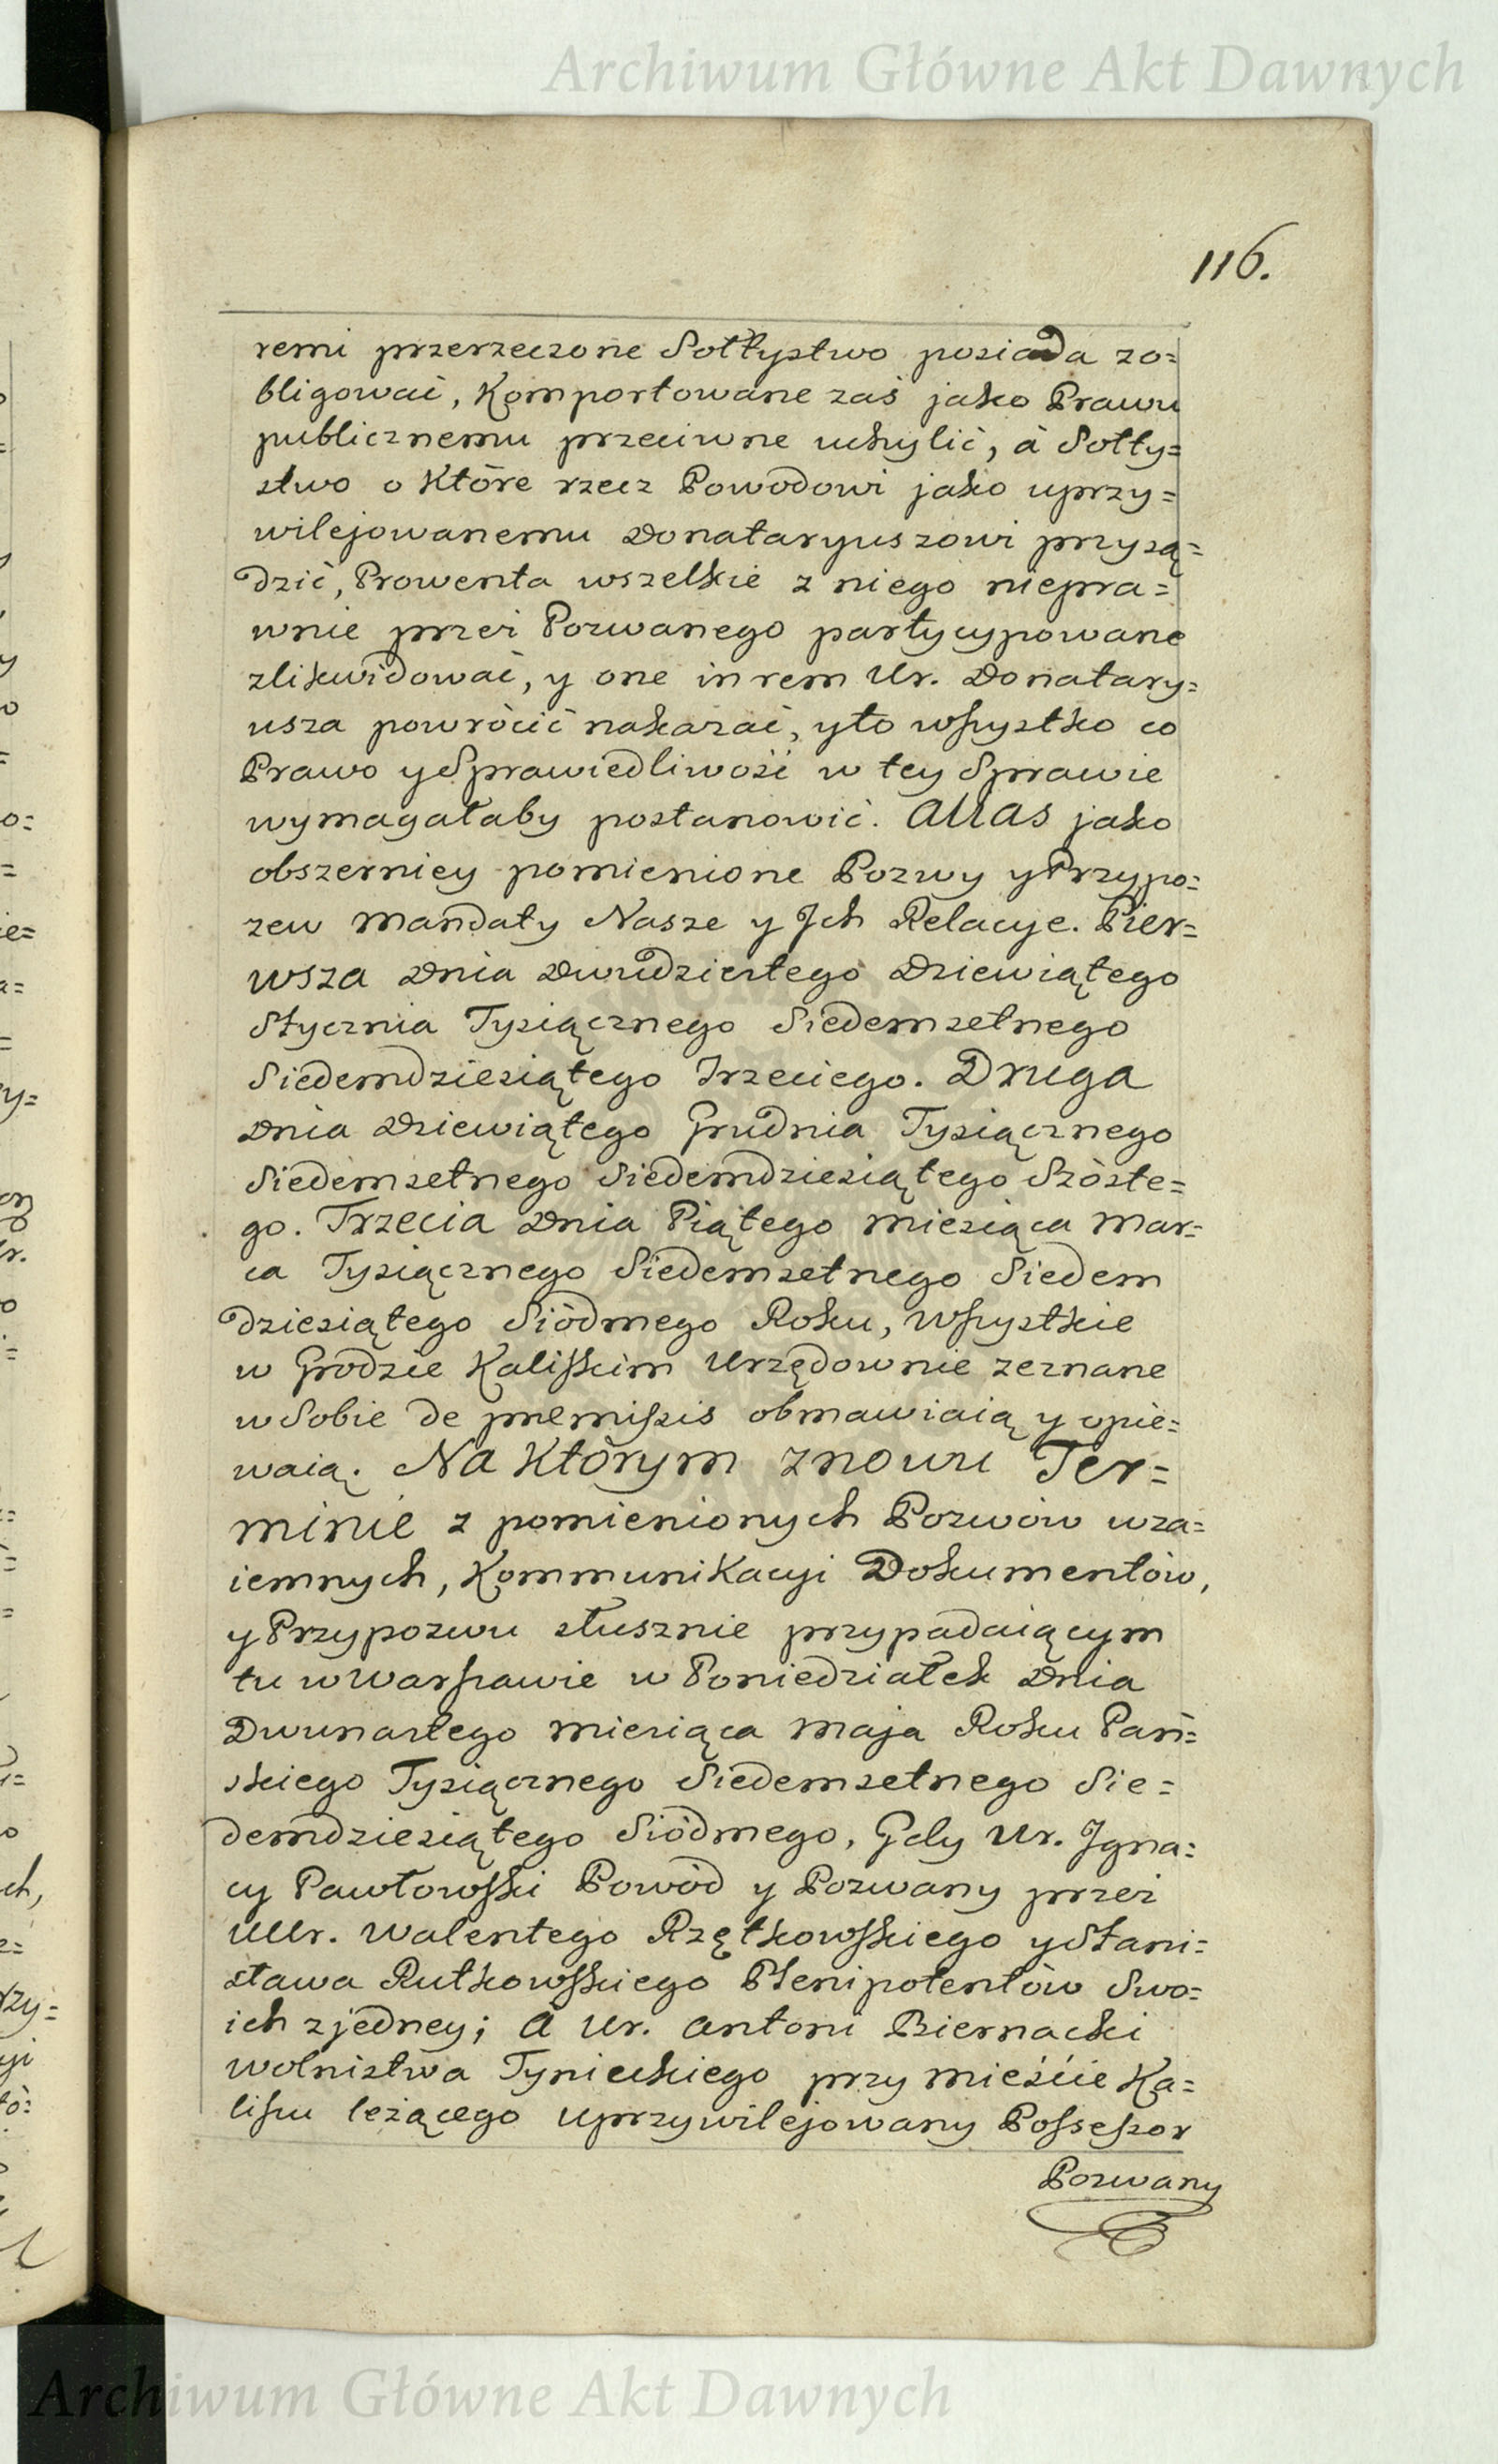 Archiwum Główne Akt Dawnych
116.
remi przerzeczone Sołtystwo posiada zo=
bligować, Komportowane zaś jako Prawu
publicznemu przeciwne uchylić, à Sołty=
stwo o Które rzecz Powodowi jako uprzy=
wilejowanemu Donataryuszowi przysą=
dzić, Prowenta wszelkie z niego niepra=
wnie przez Pozwanego partycypowane
zlikwidować, y one in rem Ur. Donatary=
usza powrócić nakazać, y to wszystko co
Prawo y Sprawiedliwość w tey Sprawie
wymagałaby postanowić. Alias jako
obszerniey pomienione Pozwy y Przypo=
zew Mandaty Nasze y Jch Relacye. Pier=
wsza Dnia Dwudziestego Dziewiątego
Stycznia Tysiącznego Siedemsetnego
Siedemdziesiątego Trzeciego. Druga
Dnia Dziewiątego Grudnia Tysiącznego
Siedemsetnego Siedemdziesiątego Szóste=
go. Trzecia Dnia Piątego Miesiąca Mar=
ca Tysiącznego Siedemsetnego Siedem
dziesiątego Siódmego Roku, Wszystkie
w Grodzie Kaliskim Urzędownie zeznane
w Sobie de præmissis obmawiaią y opie=
waią. Na Którym znowu Ter=
minie z pomienionych Pozwów wza=
iemnych, Kommunikacyi Dokumentów,
y Przypozwu słusznie przypadaiącym
tu w Warszawie w Poniedziałek Dnia
Dwunastego Miesiąca Maja Roku Pań=
skiego Tysiącznego Siedemsetnego Sie=
demdziesiątego Siódmego, Gdy Ur. Jgna=
cy Pawłowski Powód y Pozwany przez
UUr. Walentego Rzętkowskiego y Stani=
sława Rutkowskiego Plenipotentów Swo=
ich z jedney; à Ur. Antoni Biernacki
Wolnistwa Tynieckiego przy Mieście Ka=
liszu leżącego Uprzywilejowany Possessor
Pozwany
Archiwum Główne Akt Dawnych